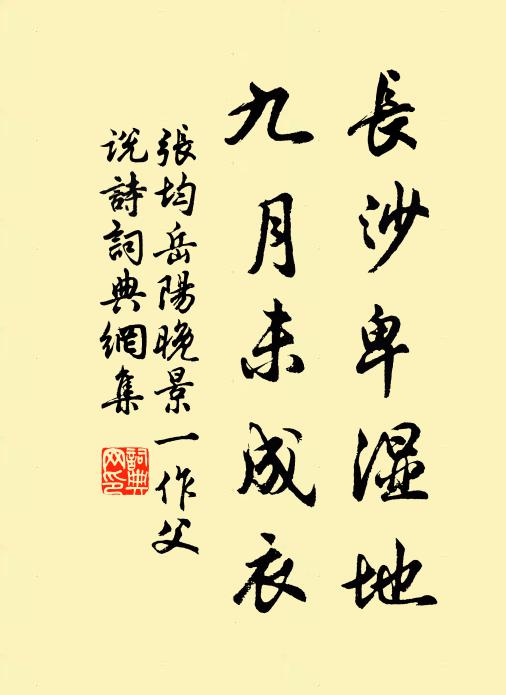 長沙卑湿地
九月未成衣
張均岳陽晚景一作父
说詩詞典網集
詞典
网印